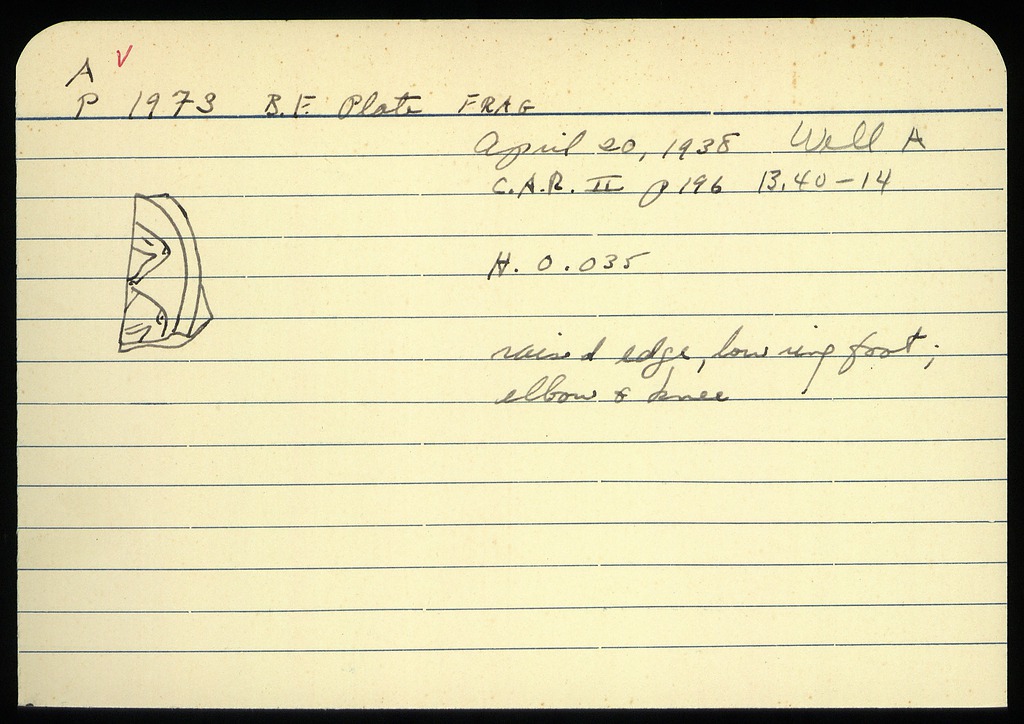 A V
P 1973 B.F. Plate FRAG
April 20, 1938 Well A
C.A.R. II p 196 B.40-14
H. 0.035
raised edge, low ring foot;
elbow & knee